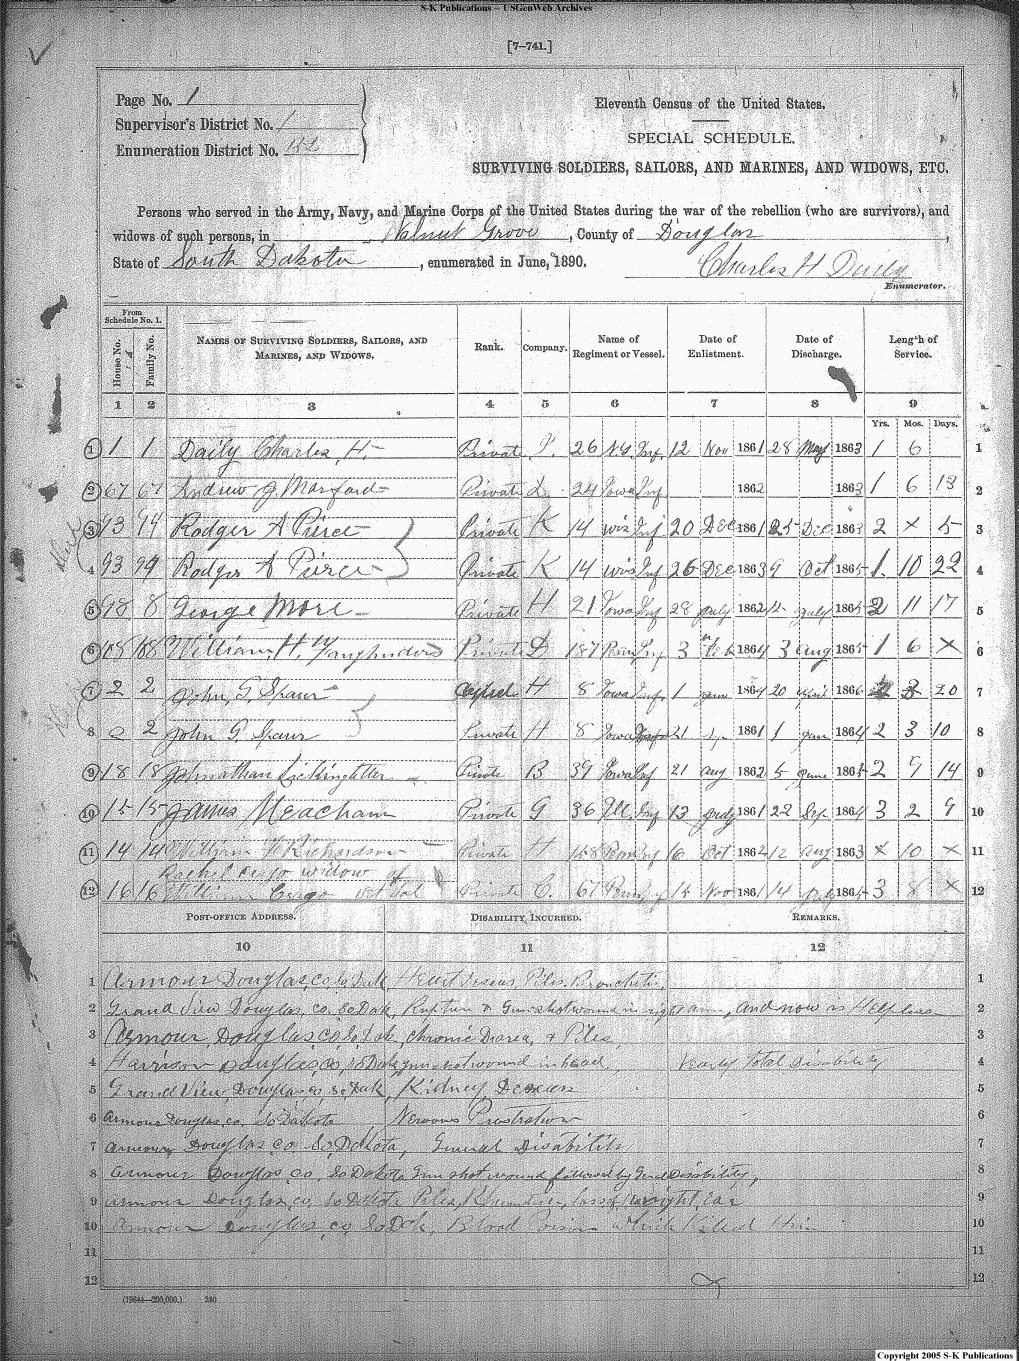 S-K Publications – USGenWeb Archives
[7–741.]
Page No. 1
Supervisor's District No. 1
Enumeration District No.
Eleventh Census of the United States.
SPECIAL SCHEDULE.
SURVIVING SOLDIERS, SAILORS, AND MARINES, AND WIDOWS, ETC.
Persons who served in the Army, Navy, and Marine Corps of the United States during the war of the rebellion (who are survivors), and
widows of such persons, in Walnut Grove, County of Douglas,
State of South Dakota, enumerated in June, 1890. Charles H Daily
Enumerator.
From Schedule No. 1.
House No. Family No. NAMES OF SURVIVING SOLDIERS, SAILORS, AND MARINES, AND WIDOWS. Rank. Company. Name of Regiment or Vessel. Date of Enlistment. Date of Discharge. Length of Service.
1 2 3 4 5 6 7 8 9
Yrs. Mos. Days.
1 1 1 Daily Charles, H. Private 26 N.Y. Inf. 12 Nov 1861 28 May 1863 1 6 1
2 67 67 Andrew J. Morford Private 24 Iowa Inf 1862 1863 1 6 13 2
3 93 94 Rodger A Pierce Private K 14 Wis Inf 20 Dec 1861 25 Dec 1863 2 x 5 3
4 93 94 Rodger A Pierce Private K 14 Wis Inf 26 Dec 1863 9 Oct 1865 1 10 22 4
5 98 8 George More Private H 21 Iowa Inf 28 July 1862 July 1865 2 11 17 5
6 108 108 William, H. Private D 187 Penn Inf 3 1864 3 Aug 1865 1 6 x 6
7 2 2 John, G. Spaur H 8 Iowa Inf 1 Jan 1864 20 1866 20 7
8 2 2 John G. Spaur Private H 8 Iowa 21 1861 1 Jan 1864 2 3 10 8
9 18 18 Johnathan Private B 39 Iowa Inf 21 Aug 1862 5 June 1865 2 9 14 9
10 15 15 James Meacham Private G 36 Ill Inf 13 July 1861 22 Sep 1864 3 2 9 10
11 14 14 William Richardson Private H Penn Inf 16 Oct 1862 12 Aug 1863 x 10 x 11
Rachel widow of
12 16 16 William Crago Private C. 67 Penn 14 Nov 1861 14 July 1865 3 8 x 12
POST-OFFICE ADDRESS. DISABILITY INCURRED. REMARKS.
10 11 12
1 Armour Douglas, co So Dak, Heart Piles Bronchitis, 1
2 Grand View Douglas, co. So Dak, Rupture & Gunshot wound in right arm, and now is Helpless 2
3 Armour, Douglas co, So Dak, Chronic & Piles, 3
4 Harrison Douglas, co, So Dak gun shot wound in head, Nearly Total Disability 4
5 Grand View, Douglas, co, So Dak, Kidney 5
6 Armour Douglas, co, So Dakota, Nervous Prostration 6
7 Armour, Douglas co. So, Dakota, General Disability 7
8 Armour Douglas, co, So Dakota Gun shot wound followed by Disability, 8
9 Armour Douglas, co, So Dakota Piles, loss of right Ear 9
10 Armour Douglas, co, So Dak, Blood Poison which killed Him 10
11 11
12 12
(19644—200,000.) 240
Copyright 2005 S-K Publications